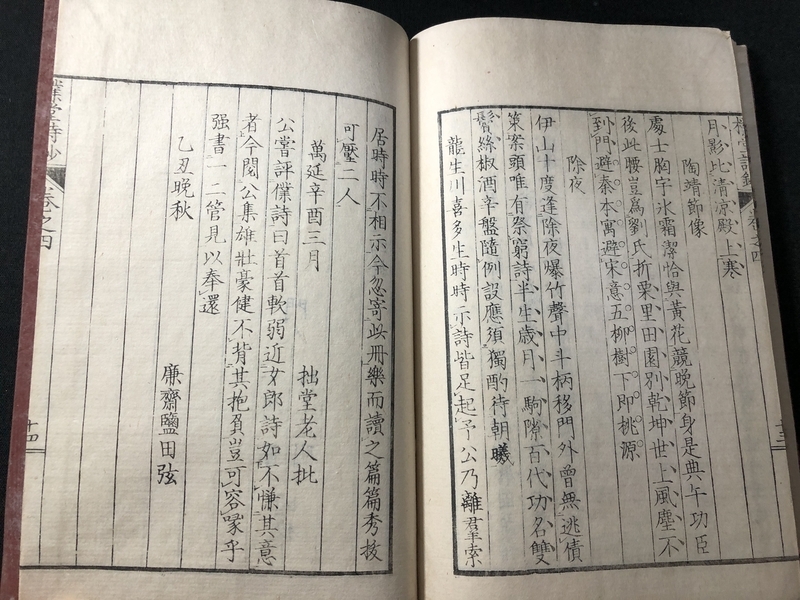 月影比淸凉殿上寒
陶靖節像
處士胸宇氷霜潔恰與黃花競晩節身是典午功臣
後此腰豈爲劉氏折栗里田園別乾坤世上風塵不
到門避秦本寓避宋意五柳樹下卽桃源
除夜
伊山十度逢除夜爆竹聲中斗柄移門外曾無逃債
策案頭唯有祭窮詩半生歲月一駒隙百代功名雙
鬢絲椒酒辛盤隨例設應須獨酌待朝曦
龍生川喜多生時時示詩皆足起予公乃離羣索
卷之四
十三
居時時不相示今忽寄此册樂而讀之篇篇秀拔
可壓二人
萬延辛酉三月
拙堂老人批
公嘗評僕詩曰首首軟弱近女郎詩如不慊其意
者今閱公集雄壯豪健不背其抱負豈可容喙乎
强書一二管見以奉還
乙丑晩秋
廉齋鹽田弦
堂詩鈔
卷之四
十四